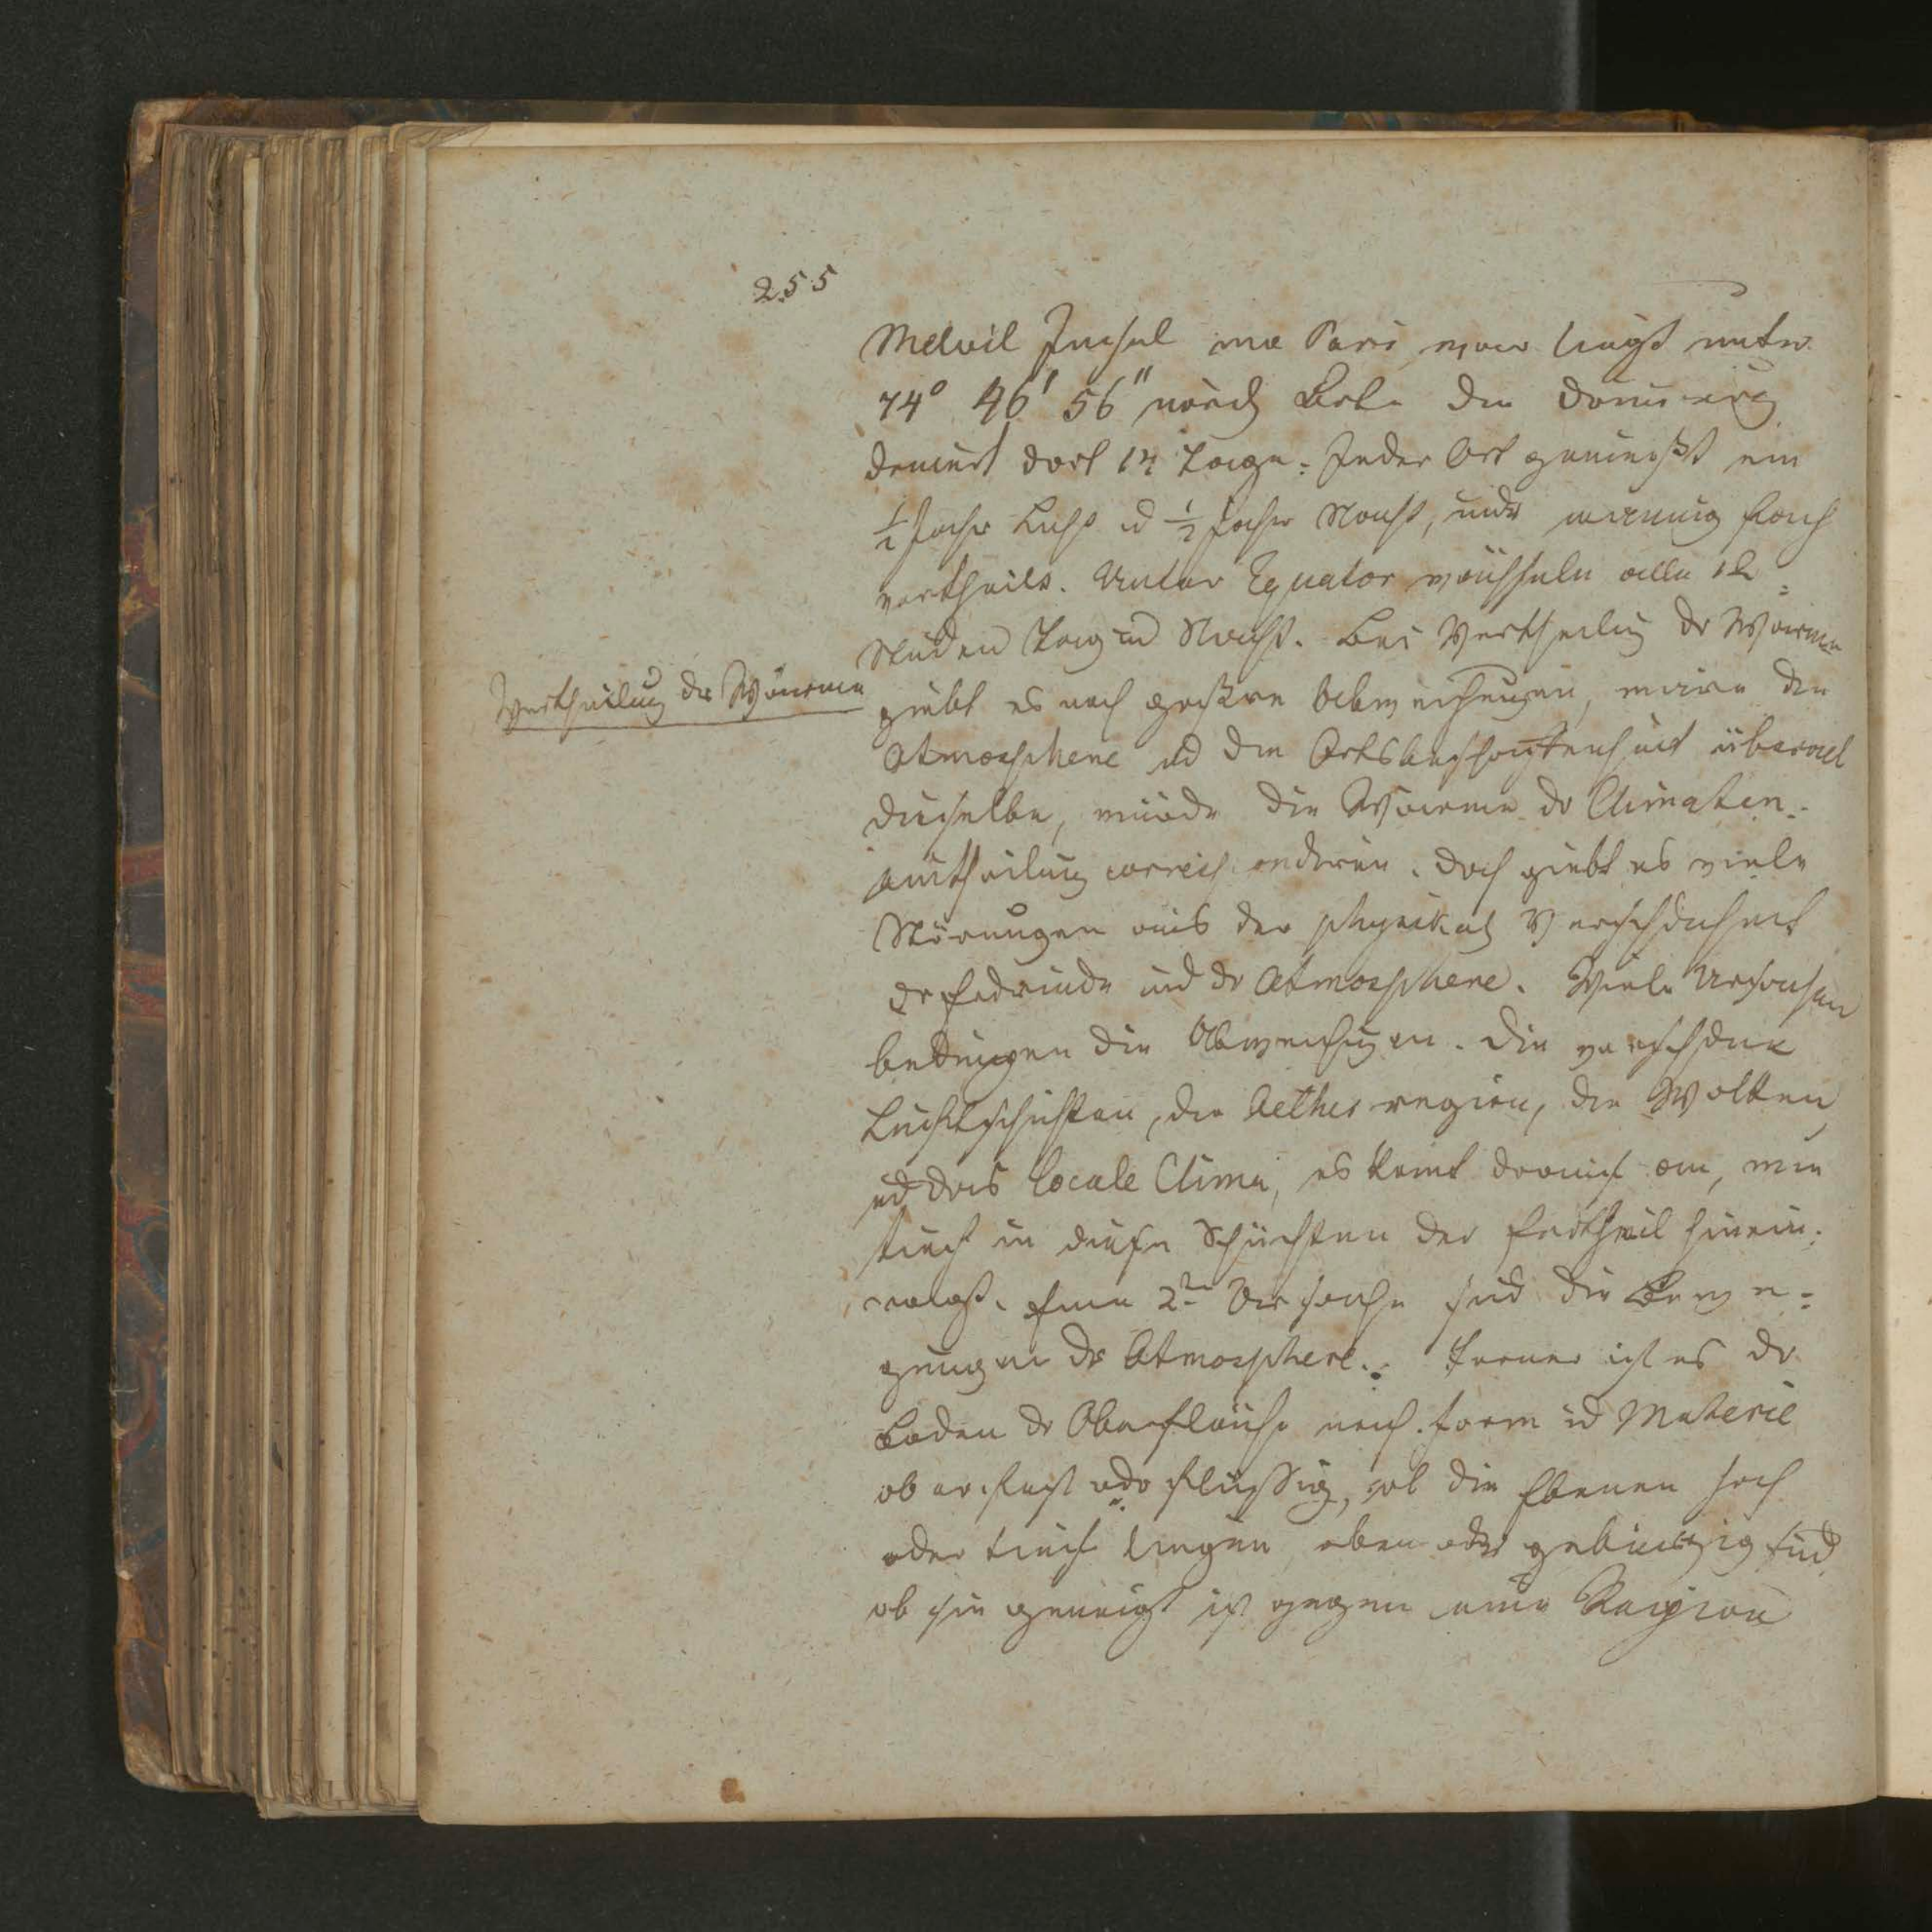 255
Melvil Insel wo Pari war liegt unter
74° 46' 56" nördl Brte die Dämerg
dauert dort 14 Tage. Jeder Ort genießt ein
½ Jahr Licht ud ½ Jahr Nacht, nur manigfach
vertheilt. Unter Equator wächseln alle 12
Stunden Tag und Nacht. Bei Vertheilug dr Wärme
Vertheilung der Wärme
giebt es noch große Abweichungen, wäre die
Atmosphere ud die Ortsbeschaffenheit überall
dieselbe, würde die Wärme dr Climaten-
eintheilung corresp ondiren. Doch giebt es viele
Störungen aus der physikal Verschdenheit
dr Erdrinde und dr Atmosphere. Viele Ursachen
bedingen die Abweichugen. Die verschdene
Luftschichten, die Aether region, die Wolken
ud das locale Clima, es komt darauf an, wie
tief in diese Schichten der Erdtheil hinein-
ragt. Eine 2te Ursache sind die Bewe-
gungen dr Atmosphere. Ferner ist es dr
Boden dr Oberfläche nach Form ud Materie
ob er fest odr flüssig, ob die Ebenen hoch
oder tief liegen eben oder gebirgig sind
ob sie geneigt ist gegen eine Region